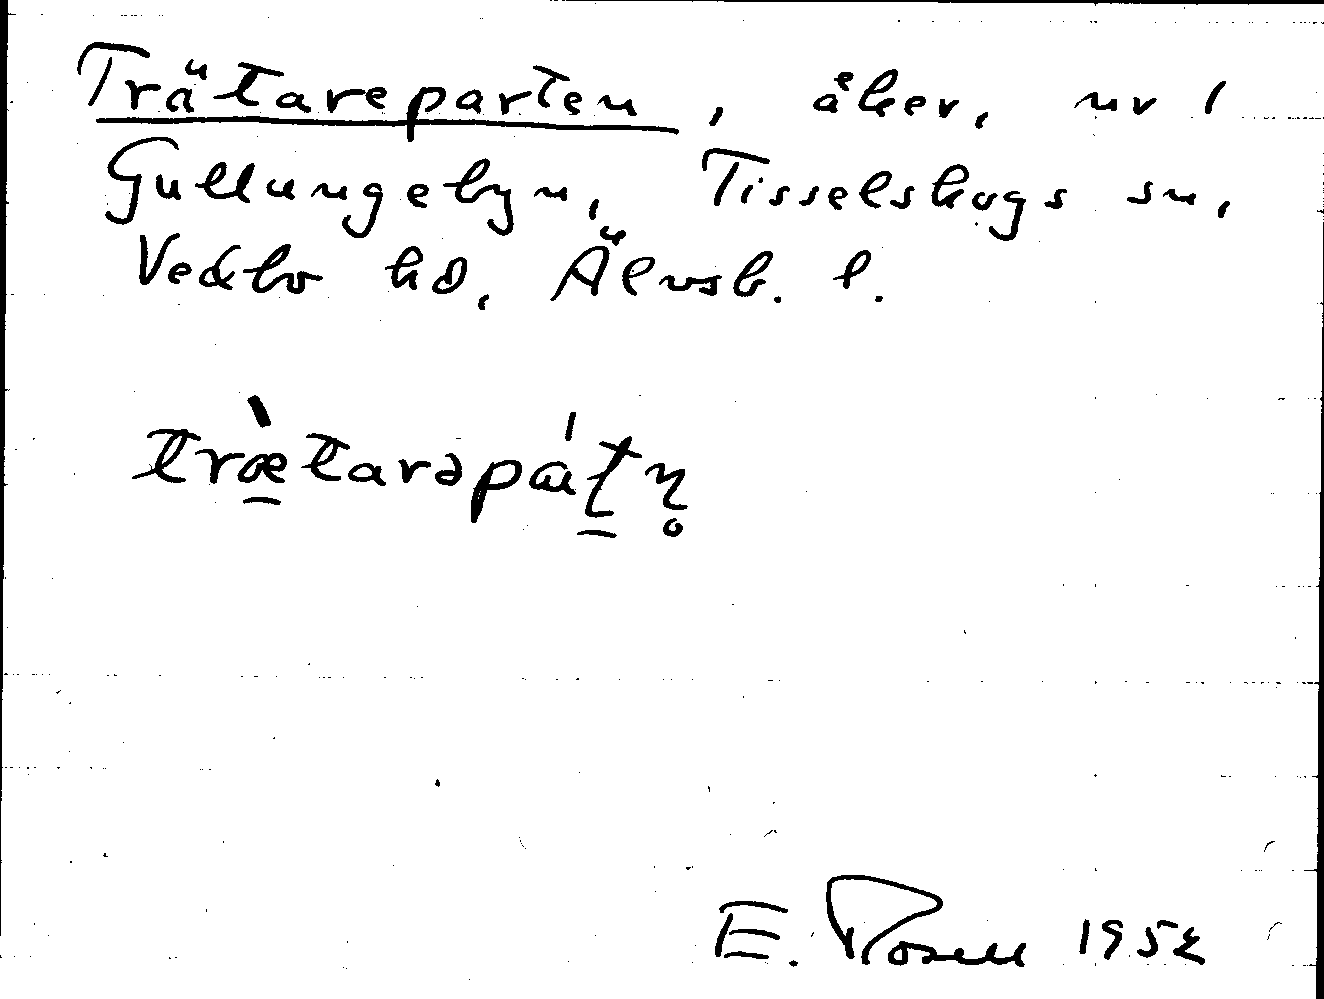 Trätareparten, åker, nr 1
Gullungebyn, Tisselskogs sn,
Vedbo hd, Älvsb. l.
træ̠̀tarəpáʈ̠ɳ̥
E. Rosell 1952